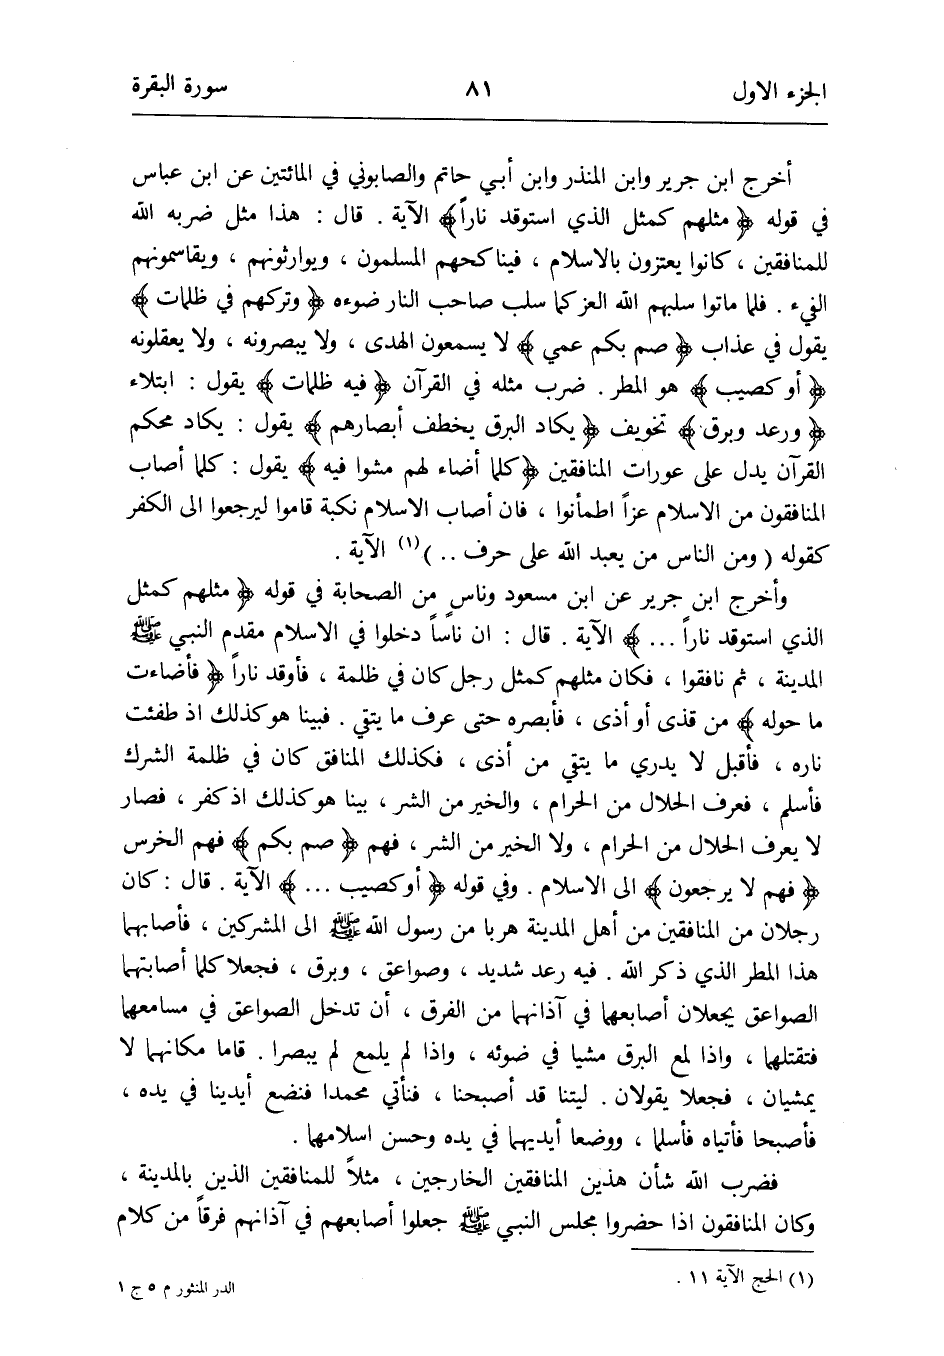 الجزء الاول
٨١
سورة البقرة
أخرج ابن جرير وابن المنذر وابن أبي حاتم والصابوني في المائتين عن ابن عباس
في قوله ﴿ مثلهم كمثل الذي استوقد ناراً ﴾ الآية . قال : هذا مثل ضربه الله
للمنافقين ، كانوا يعتزون بالاسلام ، فيناكحهم المسلمون ، ويوارثونهم ، ويقاسمونهم
الفيء . فلما ماتوا سلبهم الله العز كما سلب صاحب النار ضوءه ﴿ وتركهم في ظلمات ﴾
يقول في عذاب ﴿ صم بكم عمي ﴾ لا يسمعون الهدى ، ولا يبصرونه ، ولا يعقلونه
﴿ أو كصيب ﴾ هو المطر . ضرب مثله في القرآن ﴿ فيه ظلمات ﴾ يقول : ابتلاء
﴿ ورعد وبرق ﴾ تخويف ﴿ يكاد البرق يخطف أبصارهم ﴾ يقول : يكاد محكم
القرآن يدل على عورات المنافقين ﴿ كلما أضاء لهم مشوا فيه ﴾ يقول : كلما أصاب
المنافقون من الاسلام عزاً اطمأنوا ، فان أصاب الاسلام نكبة قاموا ليرجعوا الى الكفر
كقوله ( ومن الناس من يعبد الله على حرف .. )(١) الآية .
وأخرج ابن جرير عن ابن مسعود وناس من الصحابة في قوله ﴿ مثلهم كمثل
الذي استوقد ناراً ... ﴾ الآية . قال : ان ناساً دخلوا في الاسلام مقدم النبي ﷺ
المدينة ، ثم نافقوا ، فكان مثلهم كمثل رجل كان في ظلمة ، فأوقد ناراً ﴿ فأضاءت
ما حوله ﴾ من قذى أو أذى ، فأبصره حتى عرف ما يتقي . فبينا هو كذلك اذ طفئت
ناره ، فأقبل لا يدري ما يتقي من أذى ، فكذلك المنافق كان في ظلمة الشرك
فأسلم ، فعرف الحلال من الحرام ، والخير من الشر ، بينا هو كذلك اذ كفر ، فصار
لا يعرف الحلال من الحرام ، ولا الخير من الشر ، فهم ﴿ صم بكم ﴾ فهم الخرس
﴿ فهم لا يرجعون ﴾ الى الاسلام . وفي قوله ﴿ أو كصيب ... ﴾ الآية . قال : كان
رجلان من المنافقين من أهل المدينة هربا من رسول الله ﷺ الى المشركين ، فأصابهما
هذا المطر الذي ذكر الله . فيه رعد شديد ، وصواعق ، وبرق ، فجعلا كلما أصابتهما
الصواعق يجعلان أصابعهما في آذانهما من الفرق ، أن تدخل الصواعق في مسامعهما
فتقتلهما ، واذا لمع البرق مشيا في ضوئه ، واذا لم يلمع لم يبصرا . قاما مكانهما لا
يمشيان ، فجعلا يقولان . ليتنا قد أصبحنا ، فنأتي محمدا فنضع أيدينا في يده ،
فأصبحا فأتياه فأسلما ، ووضعا أيديهما في يده وحسن اسلامهما .
فضرب الله شأن هذين المنافقين الخارجين ، مثلاً للمنافقين الذين بالمدينة ،
وكان المنافقون اذا حضروا مجلس النبي ﷺ جعلوا أصابعهم في آذانهم فرقاً من كلام
(١) الحج الآية ١١ .
الدر المنثور م ٥ ج ١